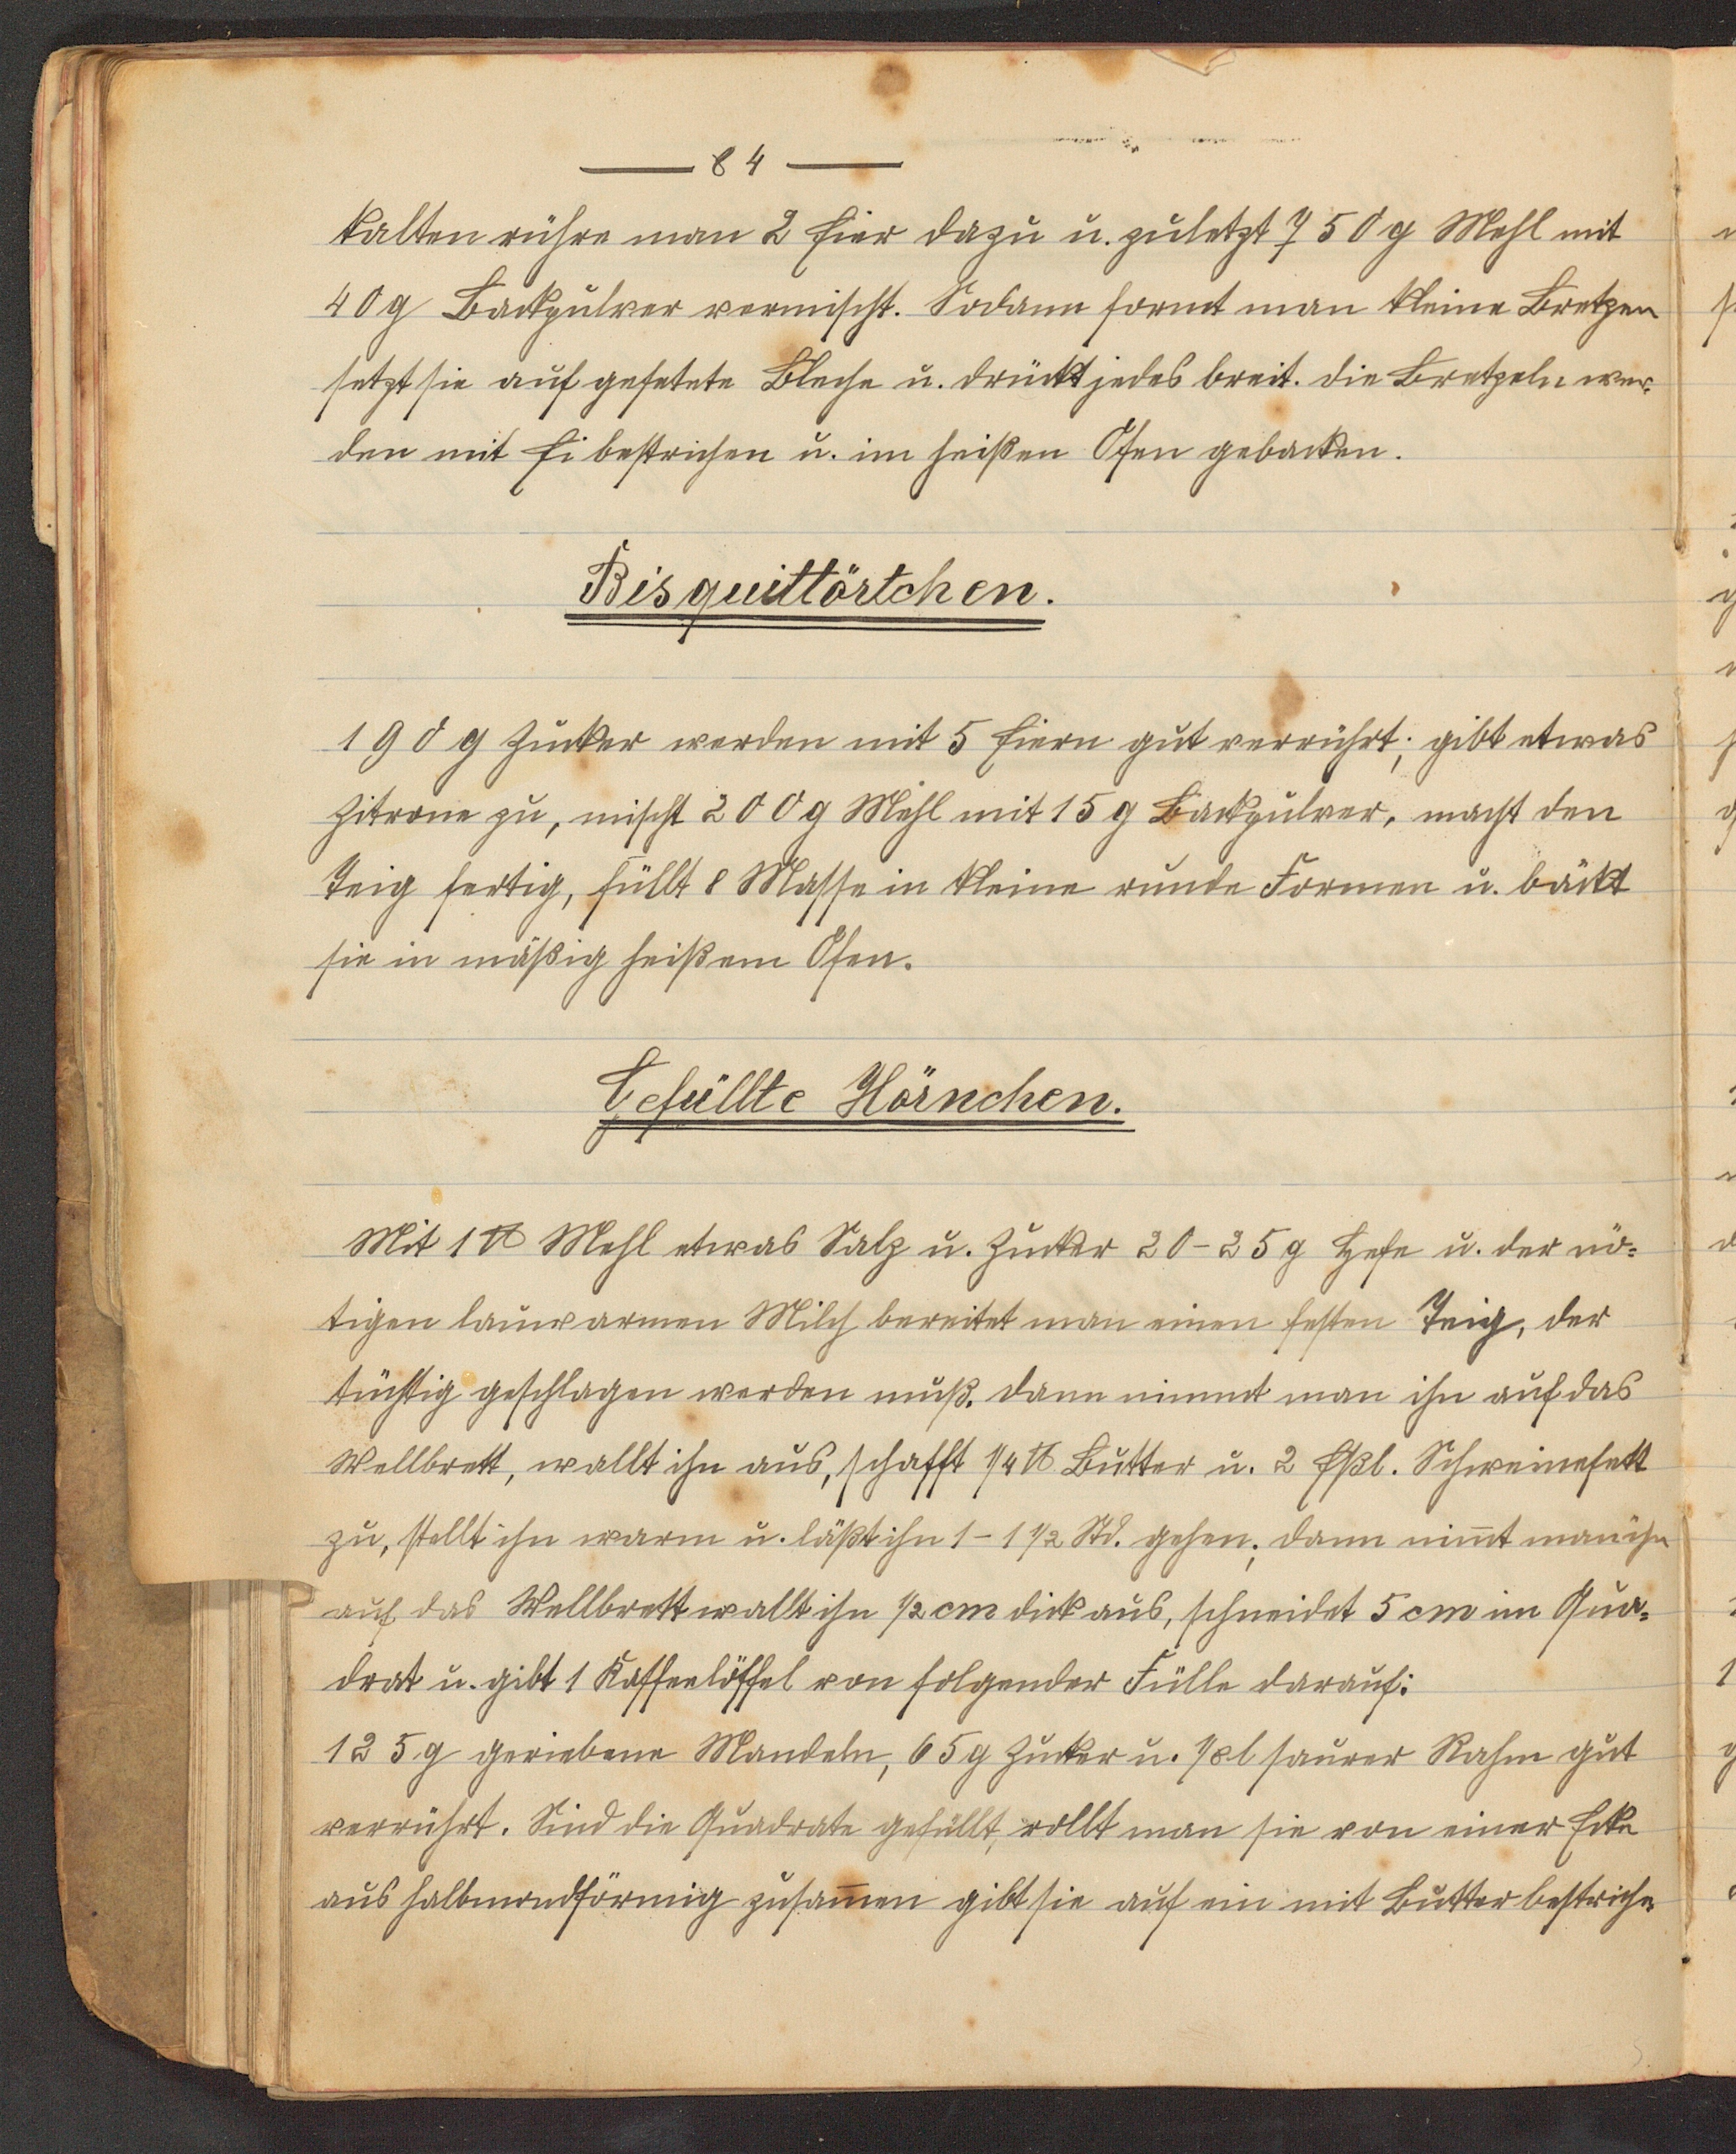 — 84 —
kalten rühre man 2 Eier dazu u. zuletzt 750g Mehl mit
40g Backpulver vermischt. Sodann formt man kleine Bretzen
setzt sie auf gefetete Bleche u. drückt jedes breit. die Bretzeln wer-
den mit Ei bestrichen u. im heißen Ofen gebacken.
Bisquittörtchen.
190g Zucker werden mit 5 Eiern gut verrührt; gibt etwas
Zitrone zu, mischt 200g Mehl mit 15g Backpulver, macht den
Teig fertig, füllt Masse in kleine runde Formen u. bäckt
sie in mäßig heißem Ofen.
Gefüllte Hörnchen.
Mit 1 ℔ Mehl etwas Salz u. Zucker 20-25g Hefe u. der nö=
tigen lauwarmen Milch bereitet man einen festen Teig, der
tüchtig geschlagen werden muß. dann nimmt man ihn auf das
Wellbrett, wallt ihn aus, schafft 1/4 ℔ Butter u. 2 Eßl. Schweinefett
zu, stellt ihn warm u. läßt ihn 1-1 1/2 Std. gehen; dann nim̄t man ihn
auf das Wellbrett wallt ihn 1/2 cm dick aus, schneidet 5 cm im Qua=
drat u. gibt 1 Kaffeelöffel von folgender Fülle darauf:
125g geriebene Mandeln, 65g Zucker u. 1/8 l saurer Rahm gut
verrührt. Sind die Quadrate gefüllt, rollt man sie von einer Ecke
aus halbmondförmig zusam̄en gibt sie auf ein mit Butter bestriche-